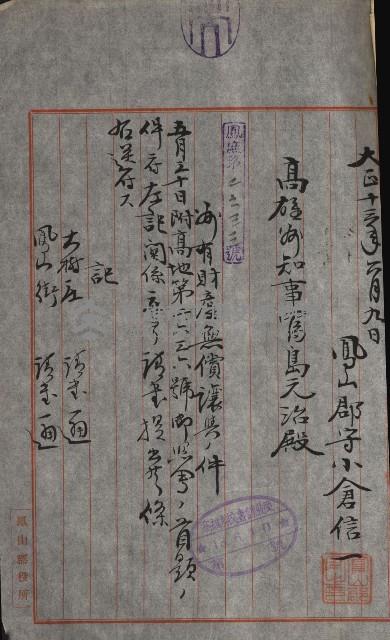 大正十三年六月九日
鳳山郡守小倉信一
高雄州知事富島元治殿
鳳庶第二六三三號
州有財產無償讓與ノ件
五月三十日附高地第一六三六號御照會ノ首題ノ
件ニ付左記關係庄ヨリ請書提出候條
右送付ス
記
大樹庄 請書一通
鳳山街 請書一通
鳳山郡役所